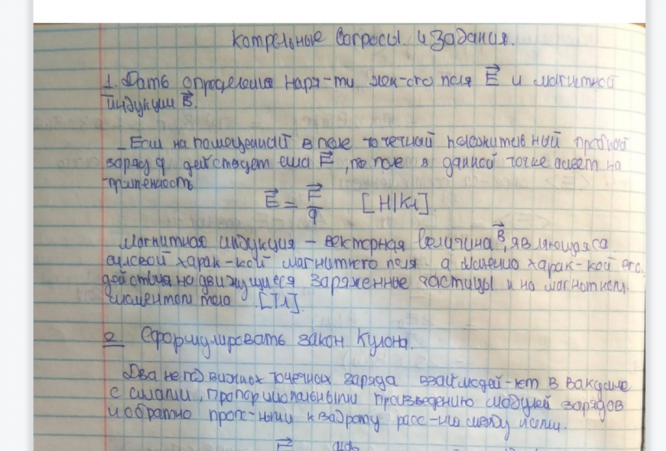 Котрольные вопросы и задания.
1. Дать определение напря-ти элек-ого поля E⃗ и магнитной
индукции B⃗.
Если на помещенный в поле точечный положительный пробный
заряд q действует сила F⃗, то поле в данной точке имеет на
пряженность
E⃗ = F⃗/q [Н/Кл].
Магнитная индукция – векторная величина B⃗, являющаяся
силовой харак-кой магнитного поля а именно харак-кой его
действия на движущиеся заряженные частицы и на
[Тл].
2 Сформулировать закон Кулона.
Два неподвижных точечных заряда взаимодей-ют в вакууме
с силами, пропорциональными произведению модулей зарядов
и обратно проп-ными квадрату расс-ию между ними.